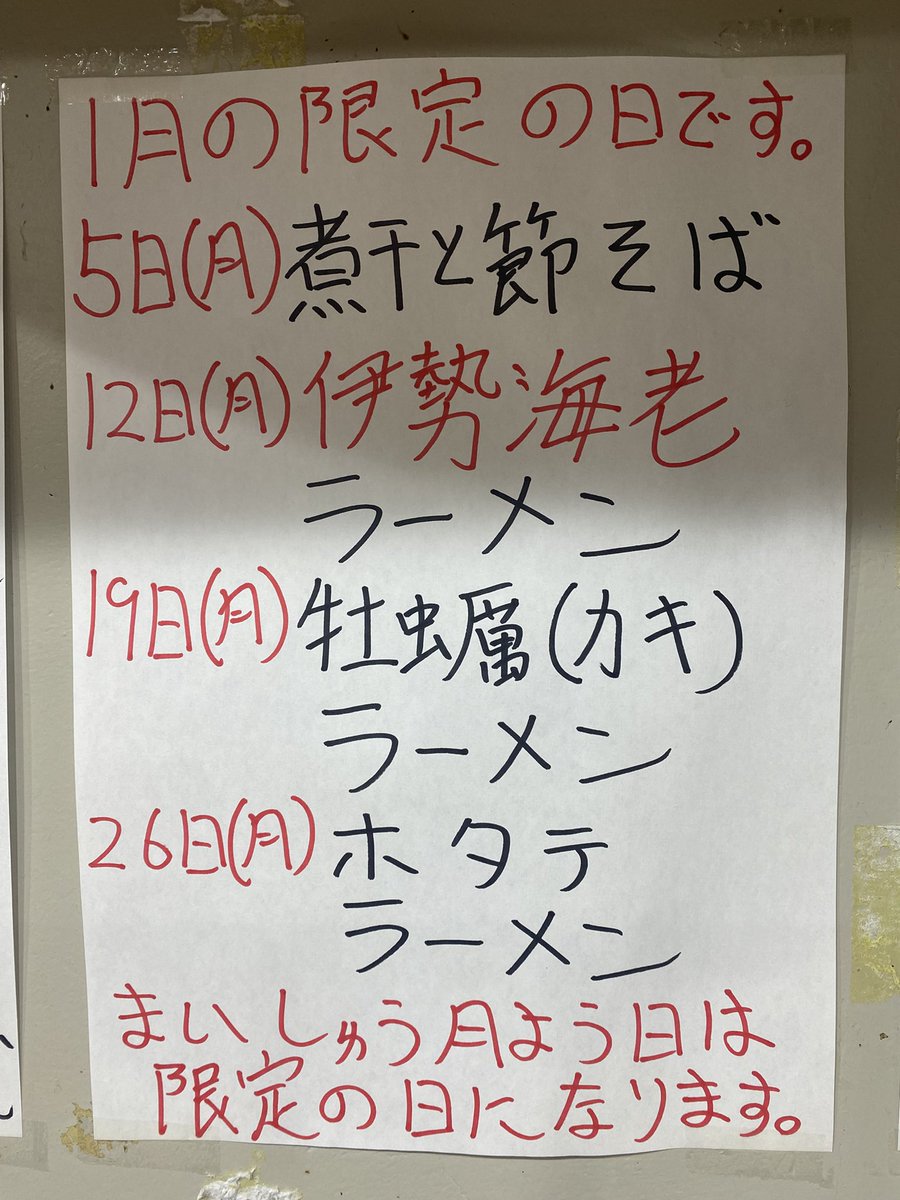 1月の限定の日です。
5日(月)煮干と節そば
12日(月)伊勢海老
ラーメン
19日(月)牡蠣(カキ)
ラーメン
26日(月)ホタテ
ラーメン
まいしゅう月よう日は
限定の日になります。